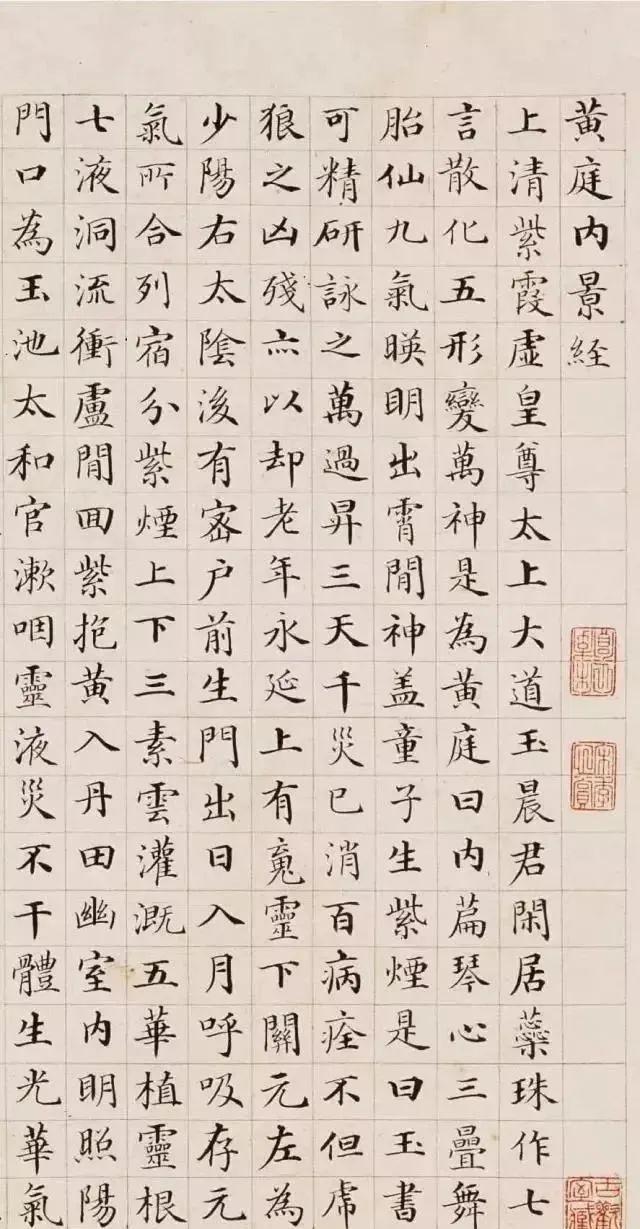 黃庭内景経
上清紫霞虛皇尊太上大道玉晨君閑居蘂珠作七
言散化五形變萬神是為黃庭曰内篇琴心三疊舞
胎仙九氣暎明出霄間神盖童子生紫煙是曰玉書
可精研詠之萬過昇三天千災已消百病痊不但虎
狼之凶殘亦以却老年永延上有䰟靈下關元左為
少陽右太陰後有密户前生門出日入月呼吸存元
氣所合列宿分紫煙上下三素雲灌溉五華植靈根
七液洞流衝廬間回紫抱黃入丹田幽室内明照陽
門口為玉池太和官漱咽靈液災不干體生光華氣